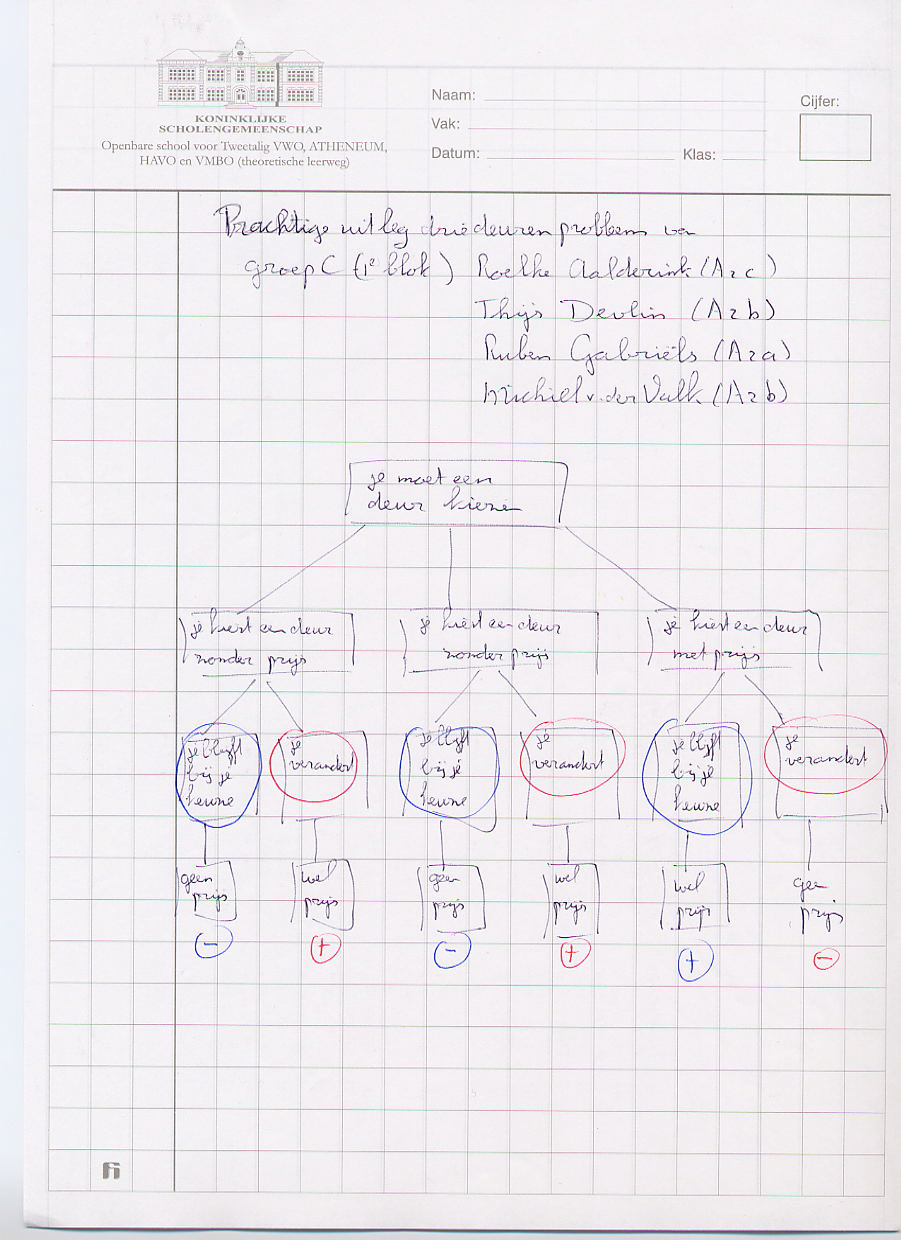 KONINKLIJKE
SCHOLENGEMEENSCHAP
Openbare school voor Tweetalig VWO, ATHENEUM,
HAVO en VMBO (theoretische leerweg)
Naam:
Vak:
Datum: Klas:
Cijfer:
Prachtige uitleg driedeurenprobleem van
groep C (1e blok) Roelke Aalderink (A2c)
Thijs Devlin (A2b)
Ruben Gabriëls (A2a)
Michiel v. der Valk (A2b)
je moet een
deur kiezen
je kiest een deur
zonder prijs
je kiest een deur
zonder prijs
je kiest een deur
met prijs
je blijft
bij je
keuze
je
verandert
je blijft
bij je
keuze
je
verandert
je blijft
bij je
keuze
je
verandert
geen
prijs
wel
prijs
geen
prijs
wel
prijs
wel
prijs
geen
prijs
− + − + + −
fi